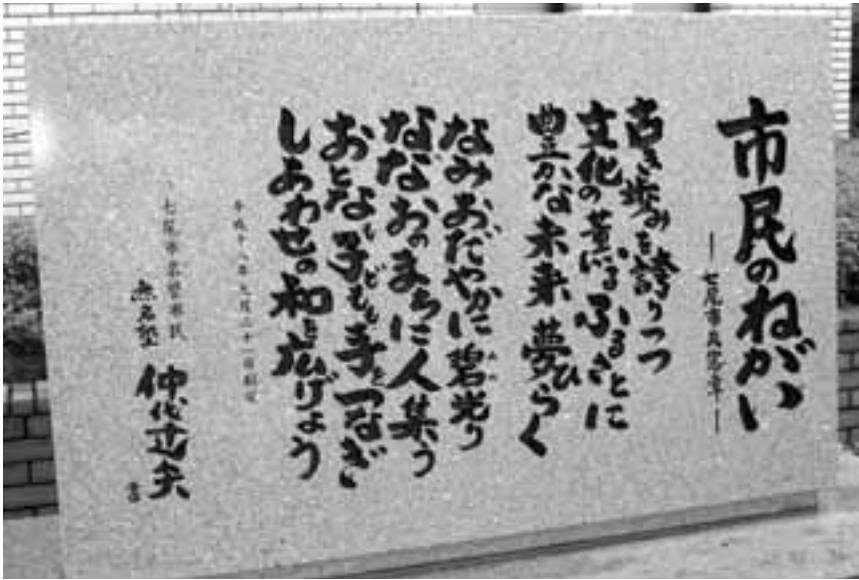 市民のねがい
―七尾市民憲章―
古き歩みを誇りつつ
文化の薫るふるさとに
豊かな未来夢ひらく
なみおだやかに碧光り
ななおのまちに人集う
おとなも子どもも手をつなぎ
しあわせの和を広げよう
七尾市名誉市民
無名塾 仲代達矢 書